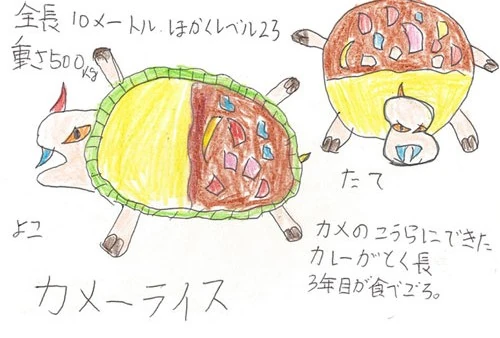 全長10メートル.ほかくレベル23
重さ500kg
よこ
たて
カメのこうらにできた
カレーがとく長
3年目が食べごろ。
カメーライス